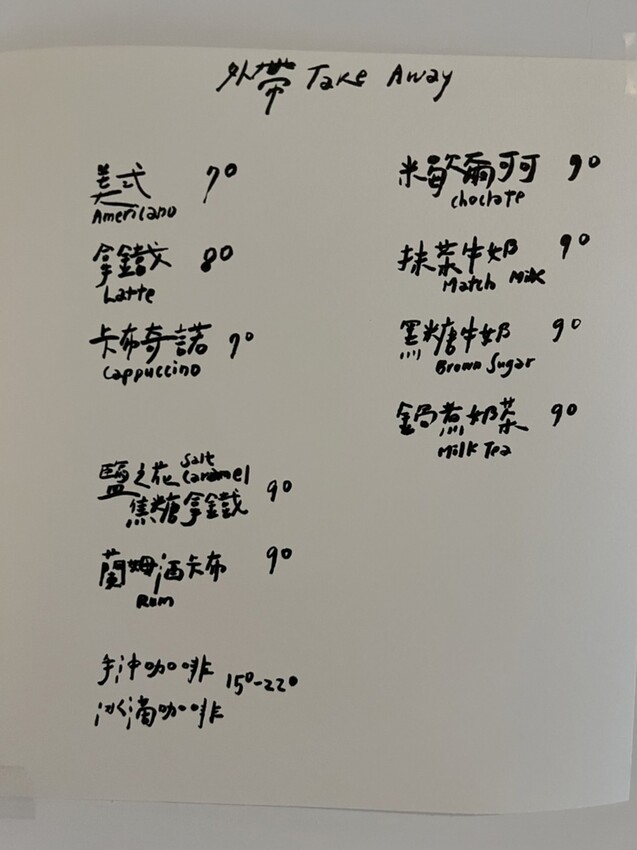 外帶 Take Away
美式 70
Americano
拿鐵 80
Latte
卡布奇諾 90
Cappuccino
鹽之花 Salt Caramel
焦糖拿鐵 90
蘭姆酒卡布 90
Rum
手沖咖啡 150-220
冰滴咖啡
米歇爾可可 90
choclate
抹茶牛奶 90
Match Milk
黑糖牛奶 90
Brown Sugar
鍋煮奶茶 90
Milk Tea